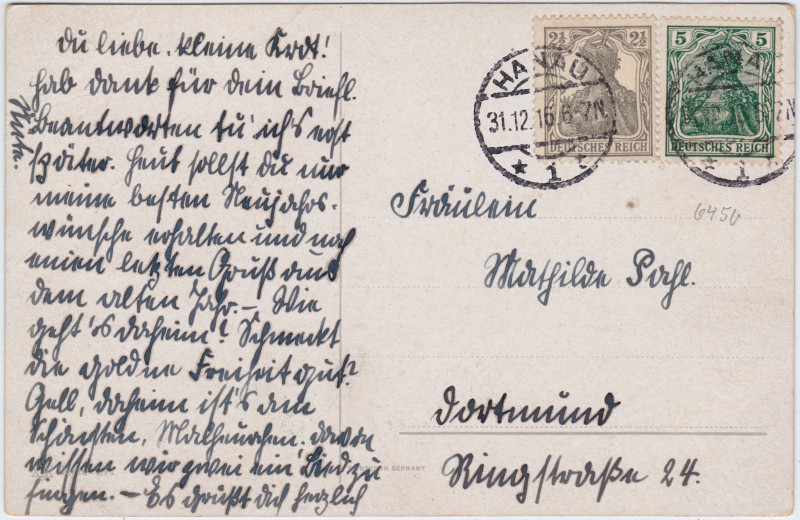 Du liebe, kleine Krot!
hab Dank für dein Briefl.
Beantworten tu' ich's erst
später. Heut sollst du nur
meine besten Neujahrs-
wünsche erhalten und noch
einen letzten Gruß aus
dem alten Jahr. – Wie
geht's daheim? Schmeckt
die goldne Freiheit gut?
Gell, daheim ist's am
Schönsten, Malheurchen. davon
wissen wir zwei ein Lied zu
singen. – Es grüßt dich herzlich
2½ 2½
DEUTSCHES REICH
5 5
DEUTSCHES REICH
HANAU
31.12.16. 6-7N.
* 1 *
6450
Fräulein
Mathilde Pahl.
Dortmund
Ringstraße 24.
GERMANY